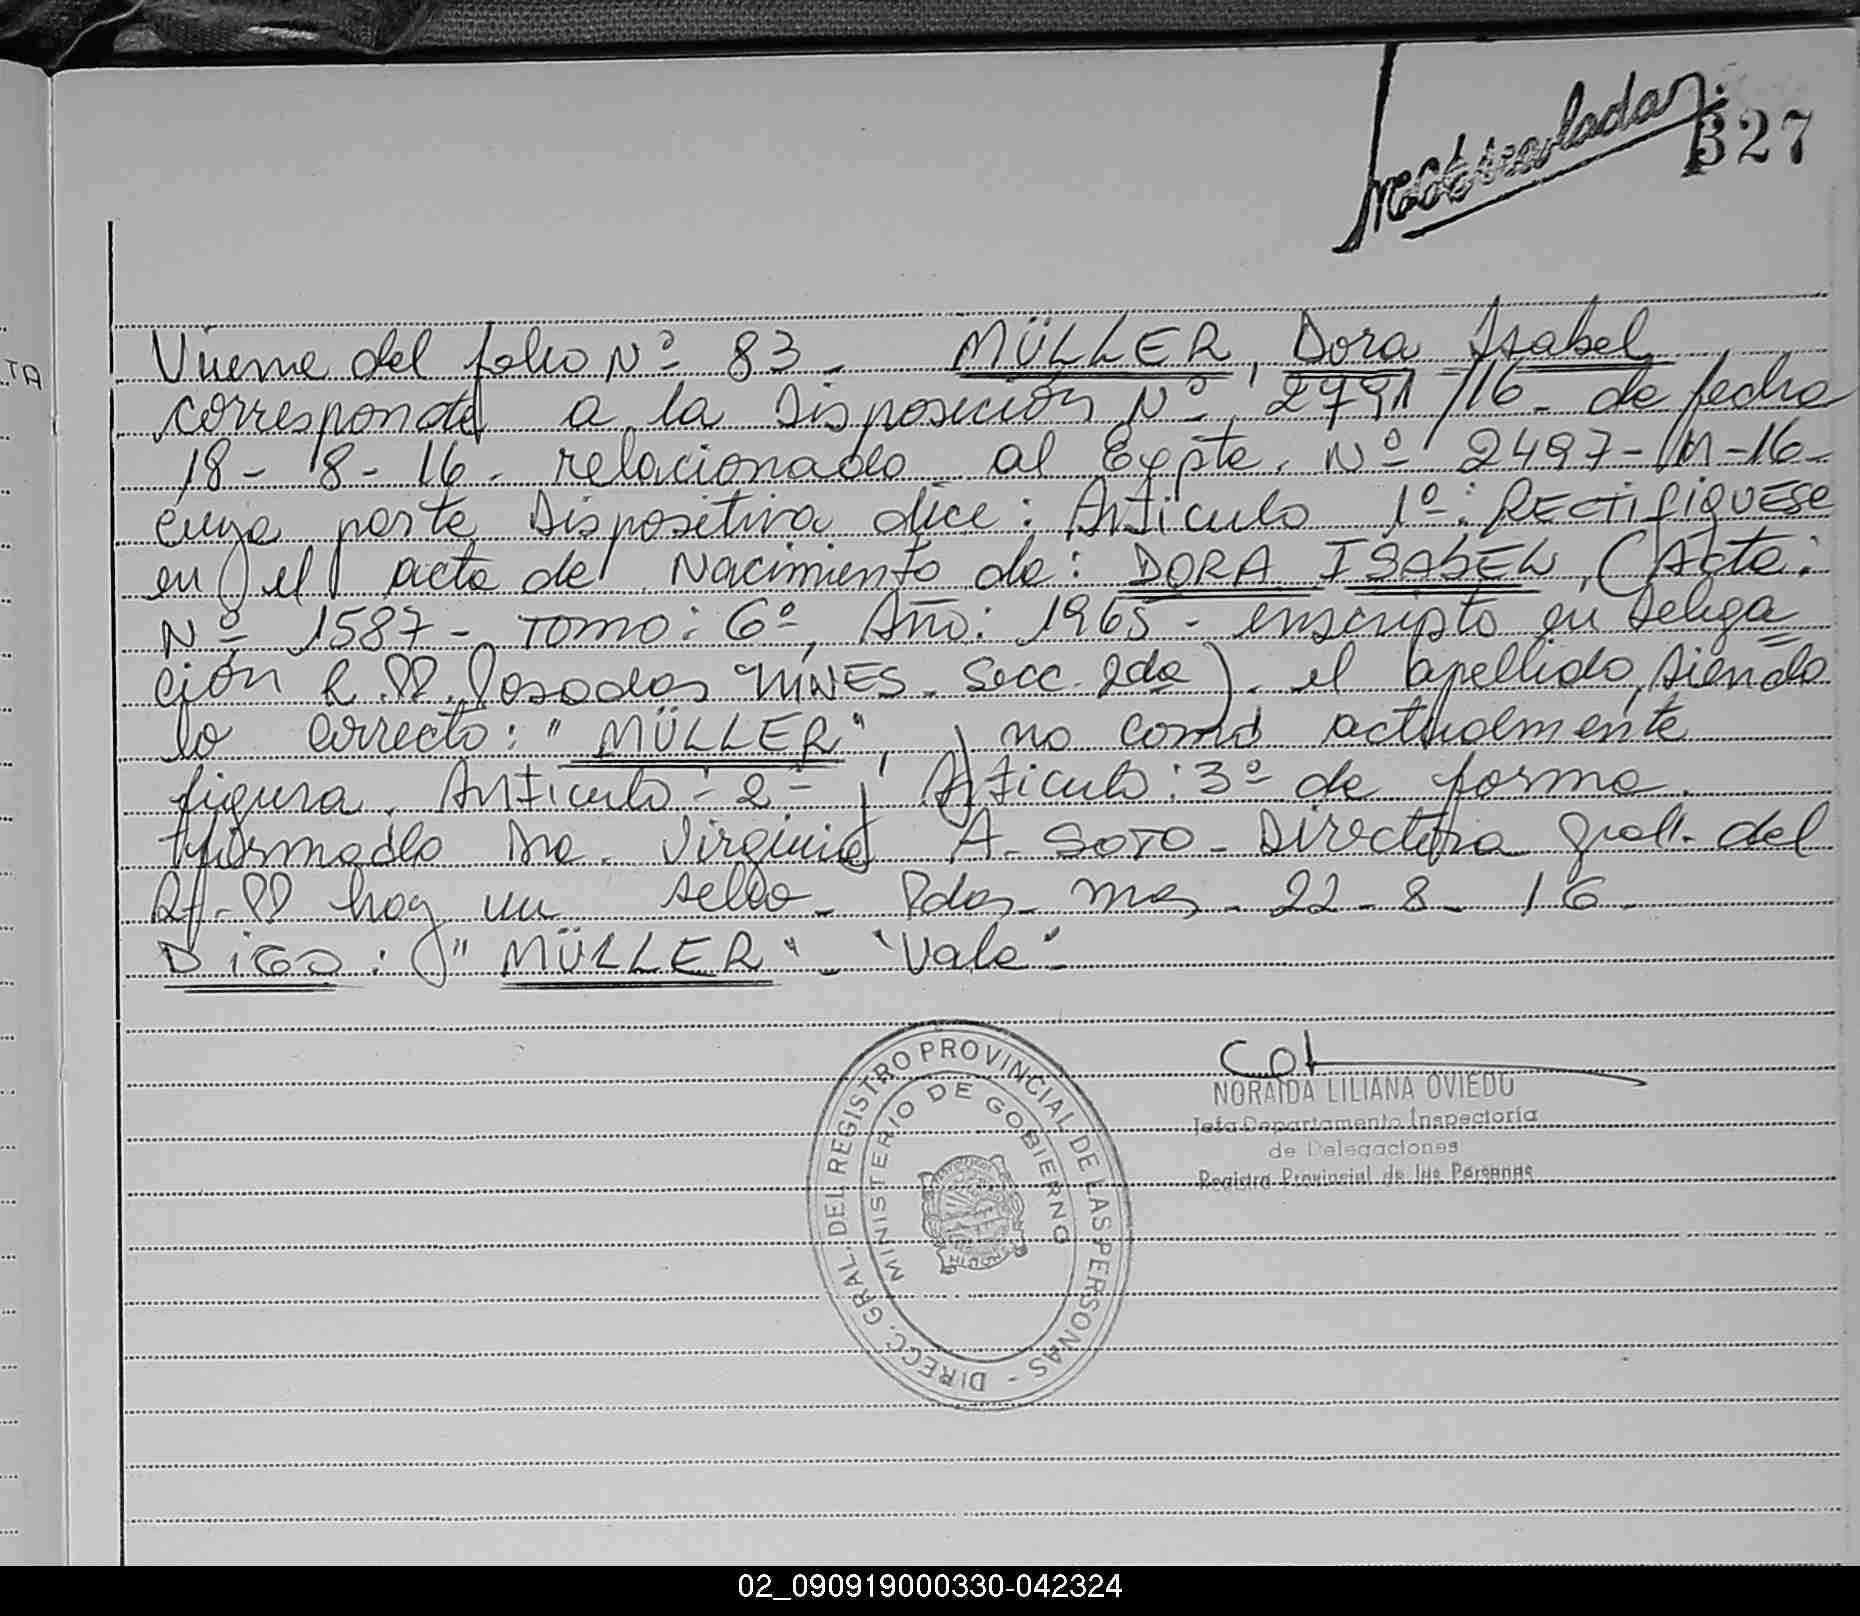 327
Viene del folio Nº 83 - MÜLLER, Dora Isabel
corresponde a la Disposición Nº 2791/16 - de fecha
18 - 8 - 16 - relacionado al Expte. Nº 2497 - M - 16 -
cuya parte Dispositiva dice: Artículo 1º: RECTIFIQUESE
en el acta de Nacimiento de: DORA ISABEL, (Acta:
Nº 1587 - Tomo: 6º, Año: 1965 - inscripto en Delega
ción R.PP. Posadas MNES. Secc. 2da). el apellido, siendo
lo correcto: "MÜLLER", y no como actualmente
figura. Artículo - 2º - y Artículo: 3º de forma.
firmado Dra. Virginia A. SOTO - Directora Gral. del
R.PP hay un sello - Pdas - Mnes - 22 - 8 - 16 -
DIGO: "MÜLLER" - "Vale" -
NORAIDA LILIANA OVIEDO
Jefa Departamento Inspectoría
de Delegaciones
Registro Provincial de las Personas
DIRECC. GRAL. DEL REGISTRO PROVINCIAL DE LAS PERSONAS -
MINISTERIO DE GOBIERNO
TA
02_090919000330-042324